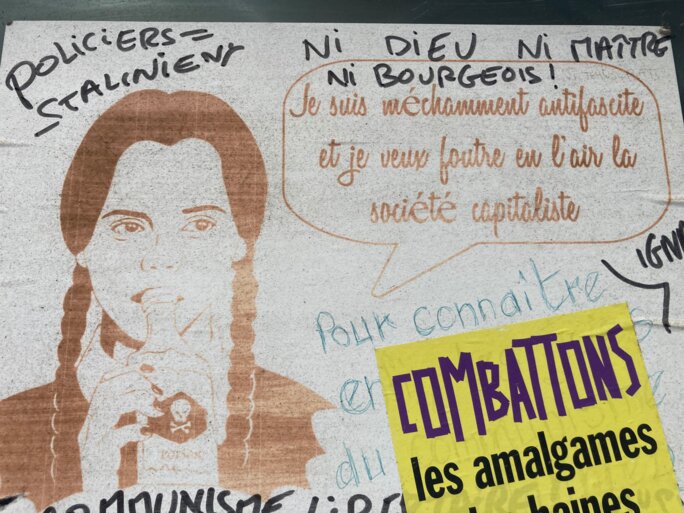 POLICIERS =
STALINIENT
NI DIEU NI MAÎTRE
NI BOURGEOIS !
Je suis méchamment antifascite
et je veux foutre en l'air la
société capitaliste
Pour connaître
en
du
COMBATTONS
les amalgames
haines
POISON